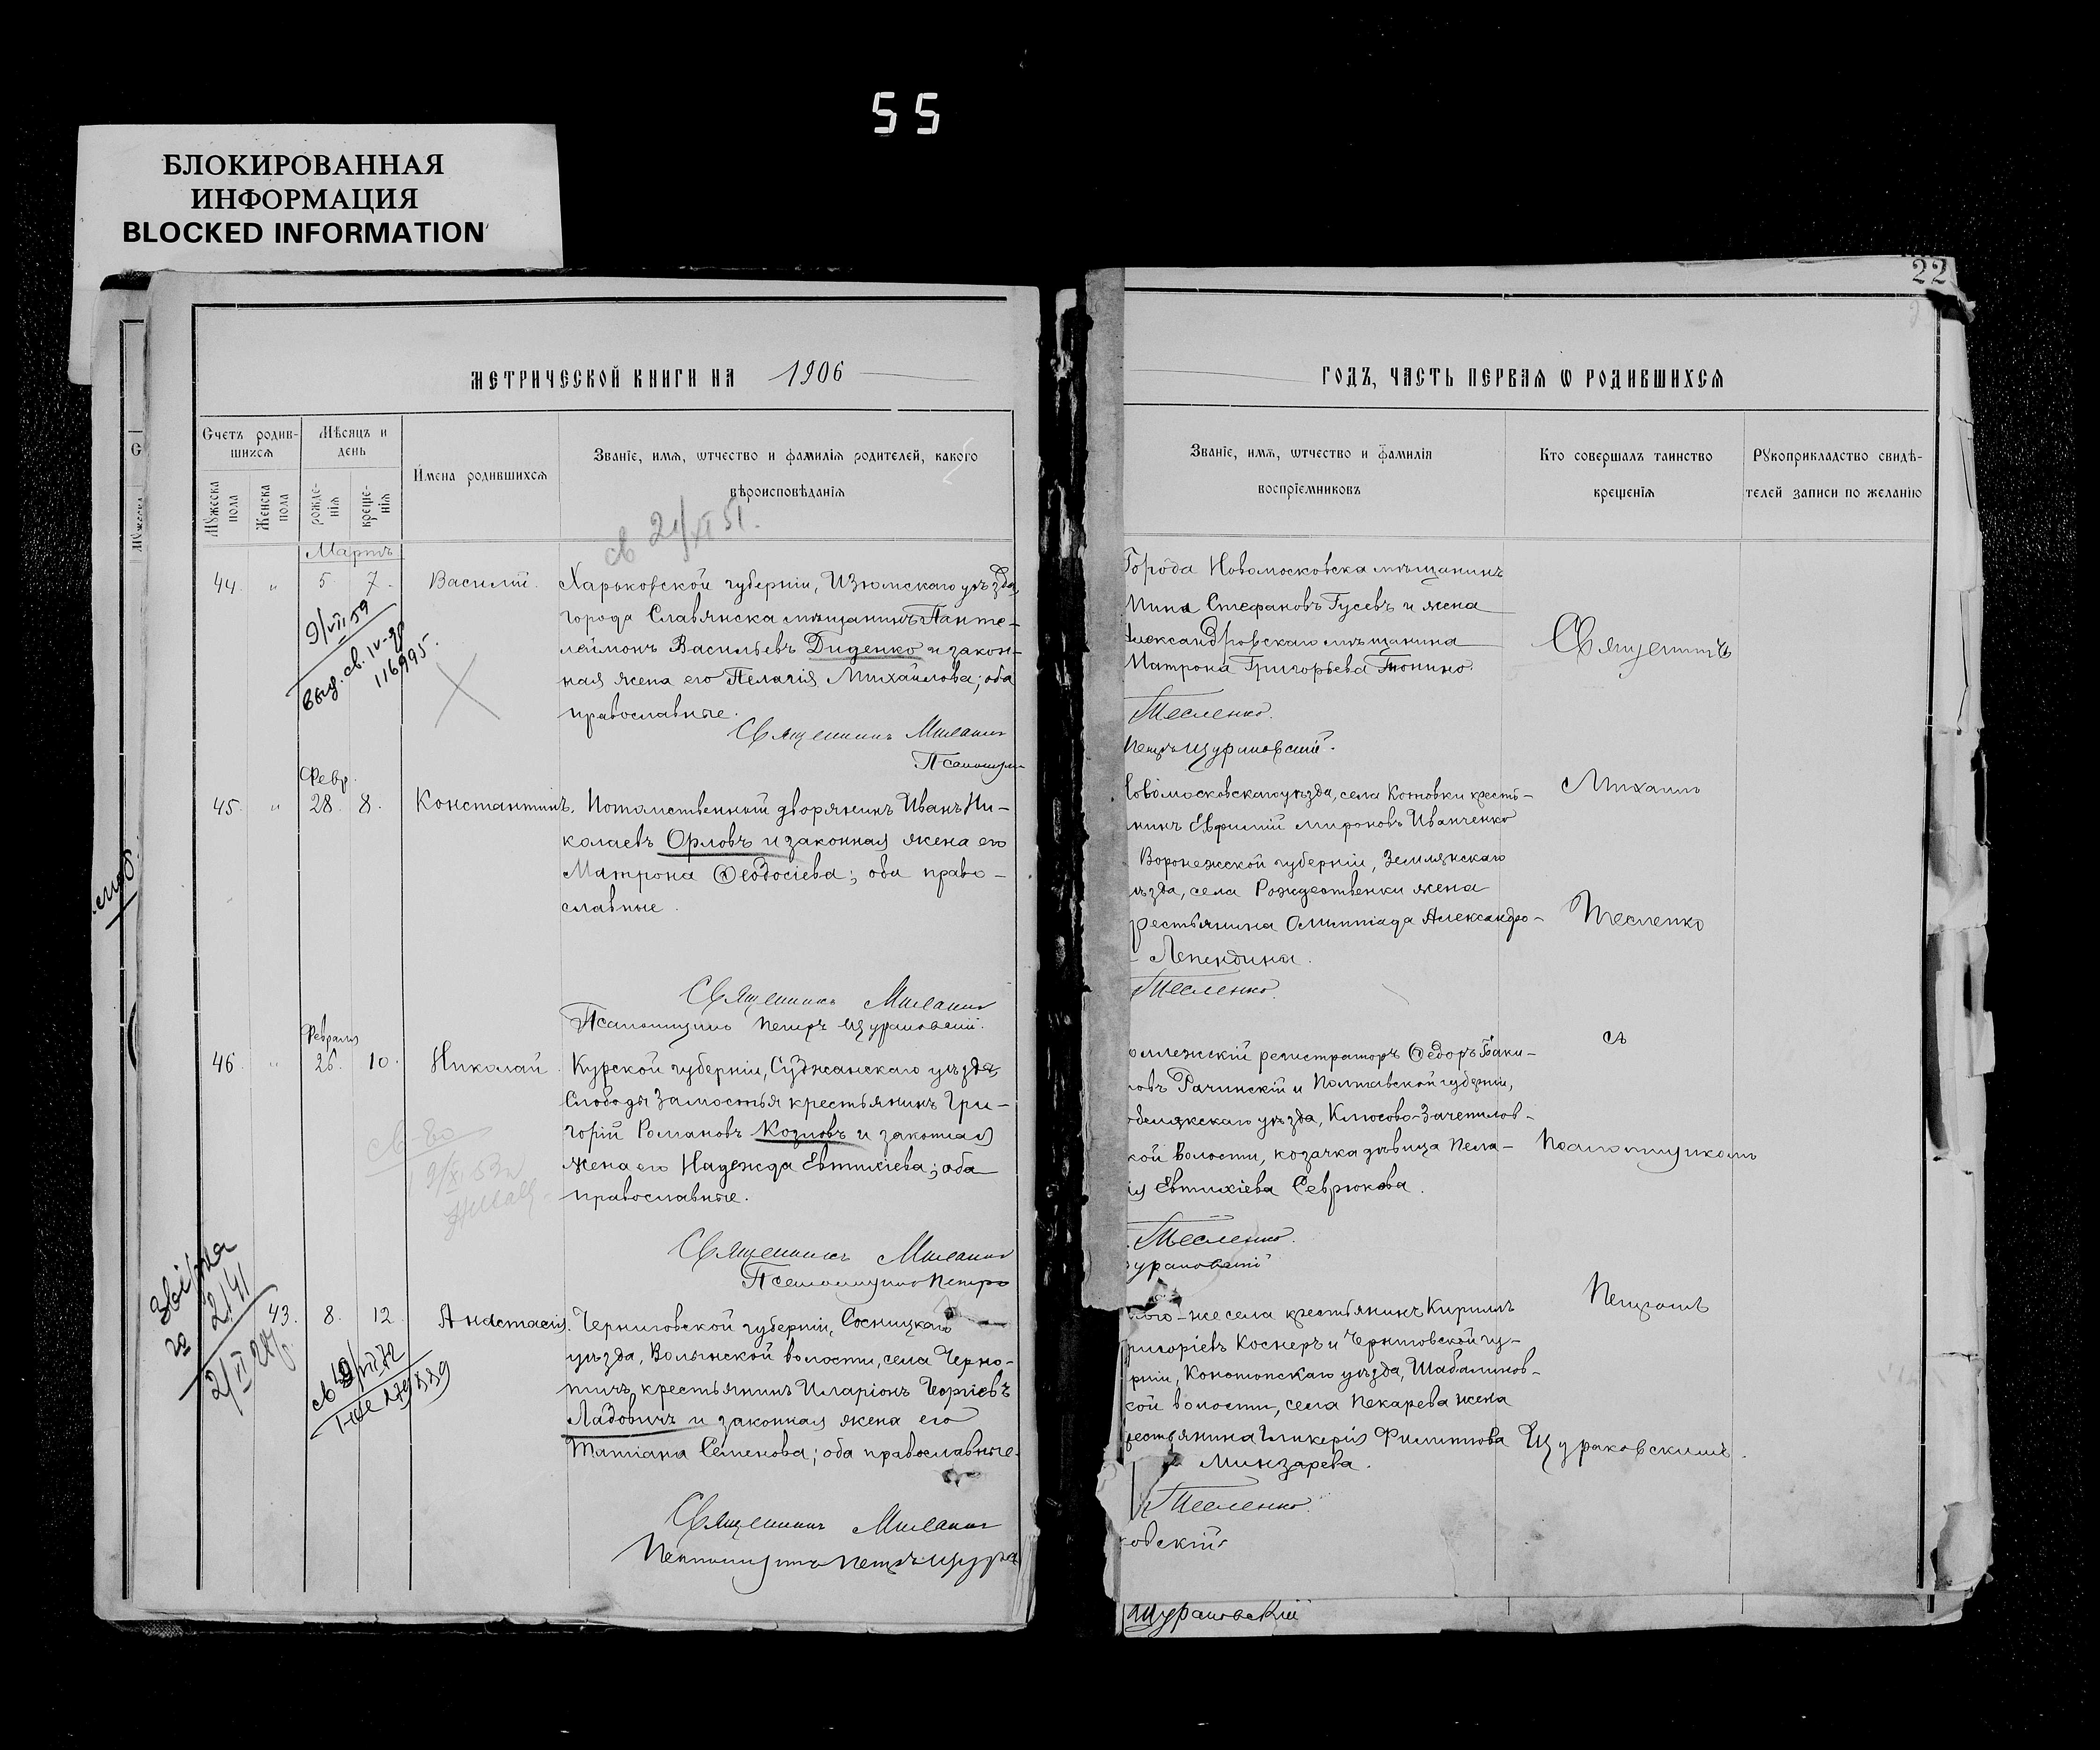 55
БЛОКИРОВАННАЯ
ИНФОРМАЦИЯ
BLOCKED INFORMATION
22
МЕТРИЧЕСКОЙ КНИГИ НА 1906
ГОДЪ, ЧАСТЬ ПЕРВАЯ Ѡ РОДИВШИХСЯ
Счетъ родив-
шихся
Мужеска пола
Женска пола
Мѣсяцъ и
день
рожде-
нія
креще-
нія
Имена родившихся
Званіе, имя, ѡтчество и фамилія родителей, какого
вѣроисповѣданія
Званіе, имя, ѡтчество и фамилія
воспріемниковъ
Кто совершалъ таинство
крещенія
Рукоприкладство свидѣ-
телей записи по желанію
св 21/XI 51.
Мартъ
44. " 5 7. Василій.
9/VII 59
выд. св. IV-
116995.
Харьковской губерніи, Изюмскаго уѣзда,
города Славянска мѣщанинъ Панте-
леймонъ Васильевъ Диденко и закон-
ная жена его Пелагія Михайлова; оба
православные.
Священникъ Михаилъ
Псаломщикъ
Города Новомосковска мѣщанинъ
Стефановъ Гусевъ и жена
Александровскаго мѣщанина
Матрона Григорьева
Тесленко.
Петръ Щураковскій.
Февр.
45. " 28. 8. Константинъ.
Потомственный дворянинъ Иванъ Ни-
колаевъ Орловъ и законная жена его
Матрона Ѳеодосіева; оба право-
славные.
Священникъ Михаилъ
Псаломщикъ Петръ Щураковскій.
овомосковскаго уѣзда, села Котовки кресть-
нинъ Евфимій Мироновъ Иванченко
Воронежской губерніи, Землянскаго
ѣзда, села Рождественки жена
рестьянина Олимпіада Александро-
Лепендина.
Тесленко.
Февраля
46. " 26. 10. Николай.
Курской губерніи, Суджанскаго уѣзда,
Слободы Замостья крестьянинъ Гри-
горій Романовъ Козловъ и законная
жена его Надежда Евтихіева; оба
православные.
Священникъ Михаилъ
Псаломщикъ Петръ
оллежскій регистраторъ Ѳедоръ
овъ Рачинскій и Полтавской губерніи,
обелякскаго уѣзда, Клюсово-Зачепилов-
кой волости, козачка дѣвица Пела-
ія Евтихіева Севрюкова.
Тесленко.
ураковскій
43. 8. 12. Анастасія.
2141
Черниговской губерніи, Сосницкаго
уѣзда, Волынской волости, села Черно-
тичъ крестьянинъ Иларіонъ Георгіевъ
Ладовичъ и законная жена его
Татіана Семенова; оба православные.
Священникъ Михаилъ
Псаломщикъ Петръ Щура
ого-же села крестьянинъ Кириллъ
ригоріевъ Коснеръ и Черниговской гу-
рніи, Конотопскаго уѣзда, Шабалинов-
кой волости, села Пекарева жена
рестьянина Гликерія Филиппова
Минзарева.
Тесленко.
овскій
Щураковскій
Священникъ
Михаилъ
Тесленко
съ
Псаломщикомъ
Петромъ
Щураковскимъ.